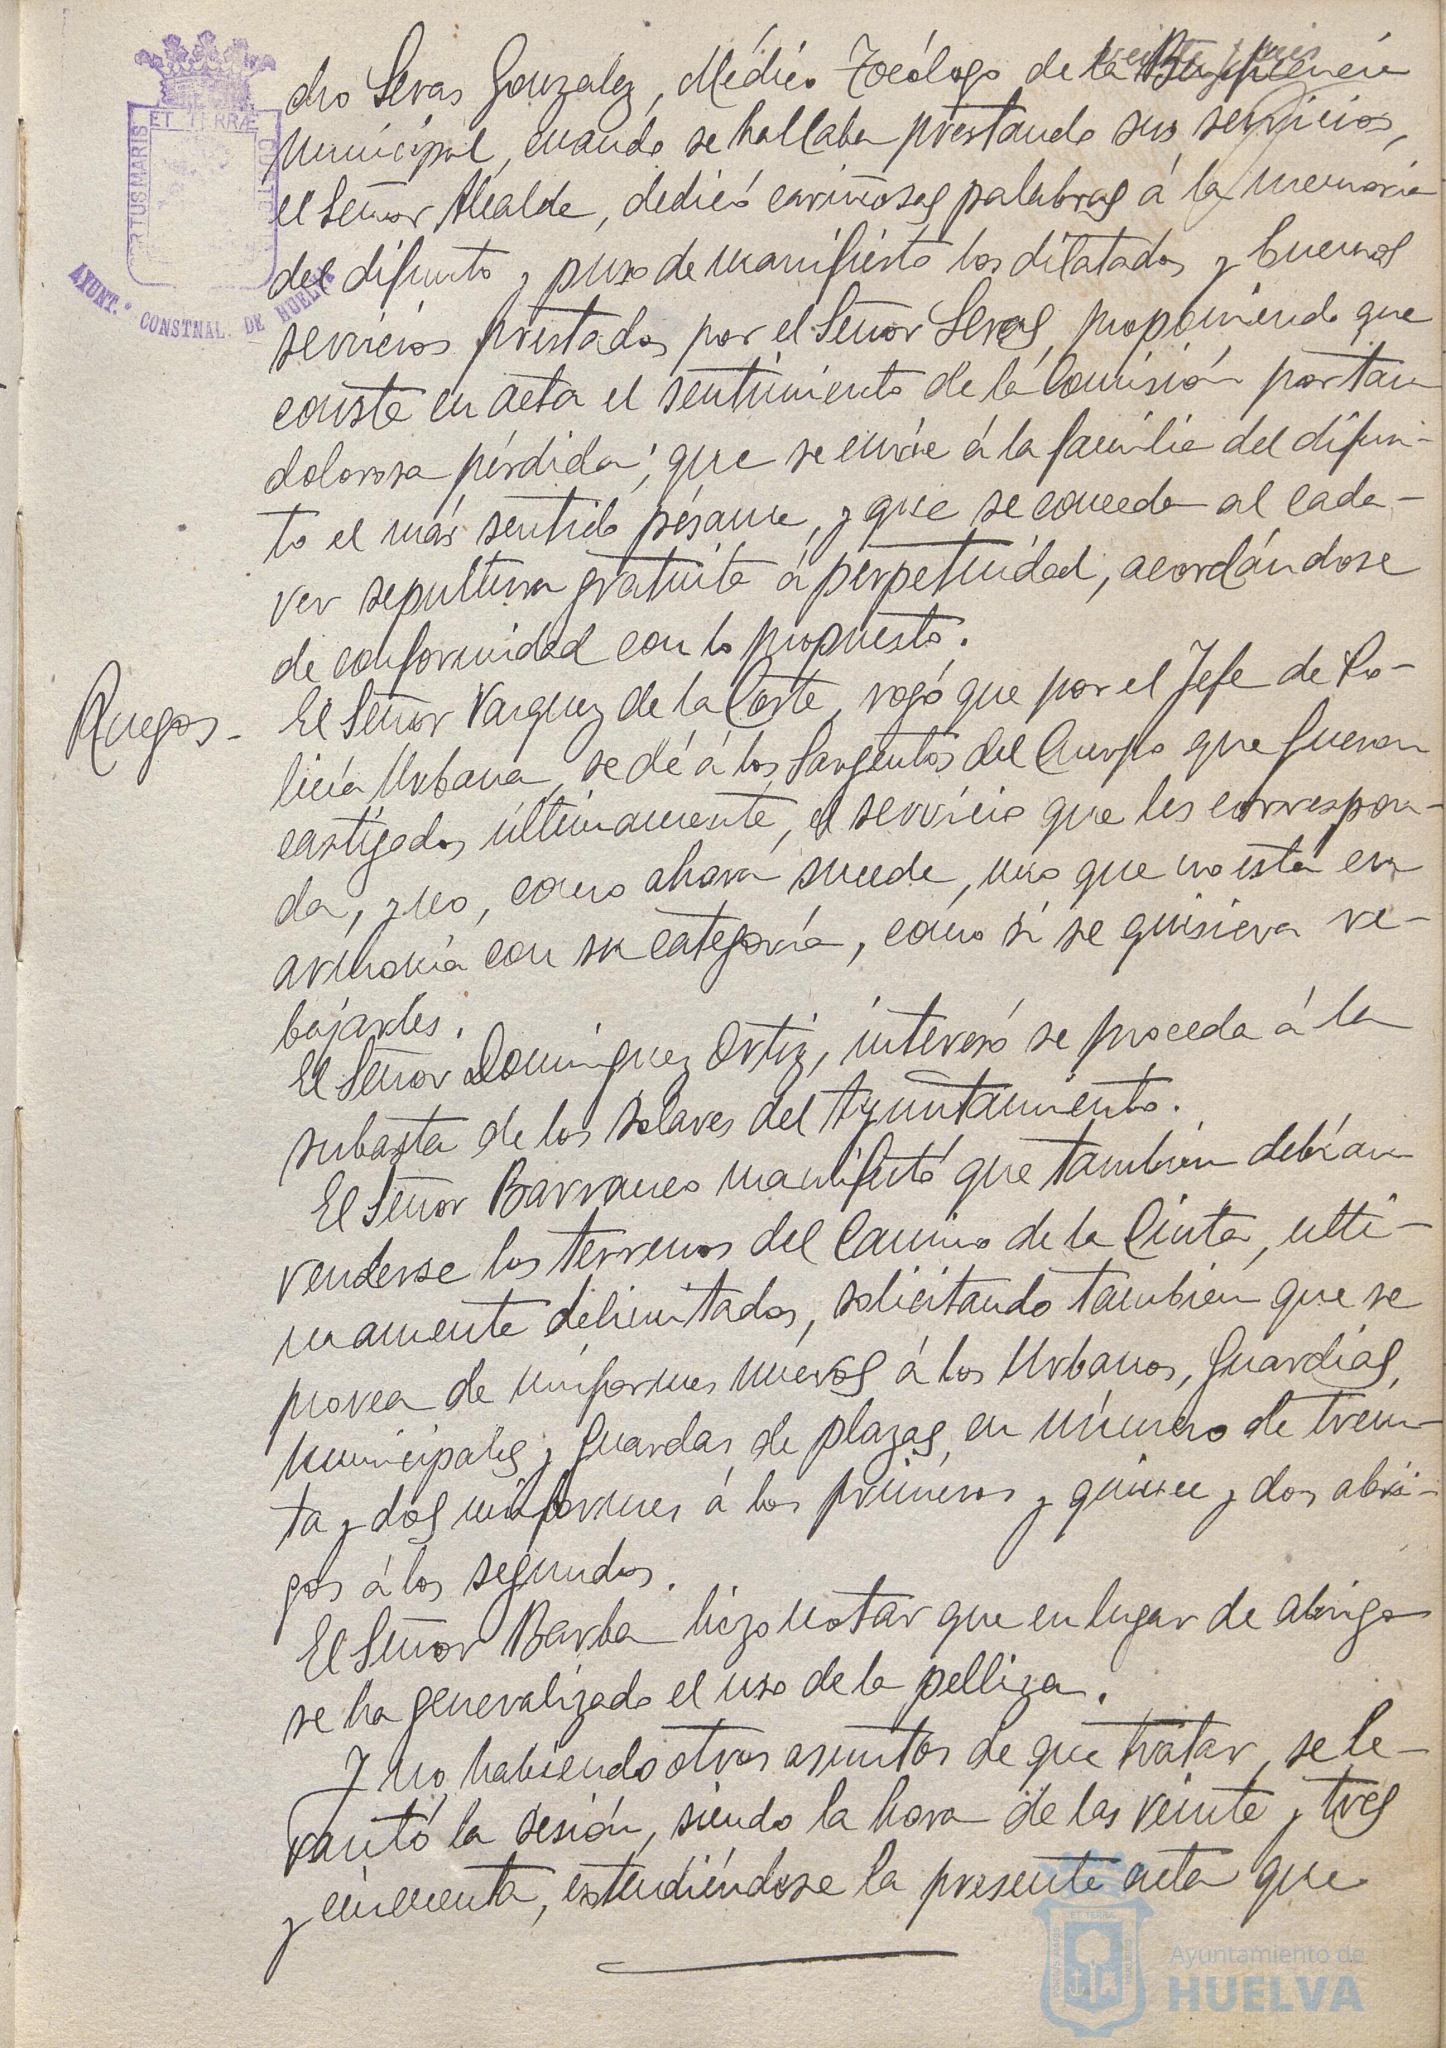 dro Seras Gonzalez, Médico Tocólogo de la Beneficencia
municipal, cuando se hallaba prestando sus servicios,
el Señor Alcalde, dedicó cariñosas palabras á la memoria
del difunto y puso de manifiesto los dilatados y buenos
servicios prestados por el Señor Seras, proponiendo que
conste en acta el sentimiento de la Comisión por tan
dolorosa pérdida; que se envíe á la familia del difun-
to el más sentido pésame, y que se conceda al cada-
ver sepultura gratuita á perpetuidad, acordándose
de conformidad con lo propuesto.
Ruegos.- El Señor Vazquez de la Corte, rogó que por el Jefe de Po-
licía Urbana, se dé á los Sargentos del Cuerpo que fueron
castigados últimamente, el servicio que les correspon-
da, y no, como ahora sucede, uno que no está en
armonía con su categoría, como si se quisiera re-
bajarles.
El Señor Dominguez Ortiz, interesó se proceda á la
subasta de los solares del Ayuntamiento.
El Señor Barranco manifestó que también debían
venderse los terrenos del Camino de la Cinta, ulti-
mamente delimitados, solicitando también que se
provea de uniformes nuevos á los Urbanos, Guardias,
municipales y Guardas de plazas, en número de trein-
ta y dos uniformes á los primeros y quince y dos abri-
gos á los segundos.
El Señor Barba hizo notar que en lugar de abrigo
se ha generalizado el uso de la pelliza.
Y no habiendo otros asuntos de que tratar, se le-
vantó la sesión, siendo la hora de las veinte y tres
y cincuenta, extendiéndose la presente acta que
PORTUS MARIS ET TERRÆ CUSTODIA
AYUNT.º CONSTNAL. DE HUELVA
Ayuntamiento de
HUELVA